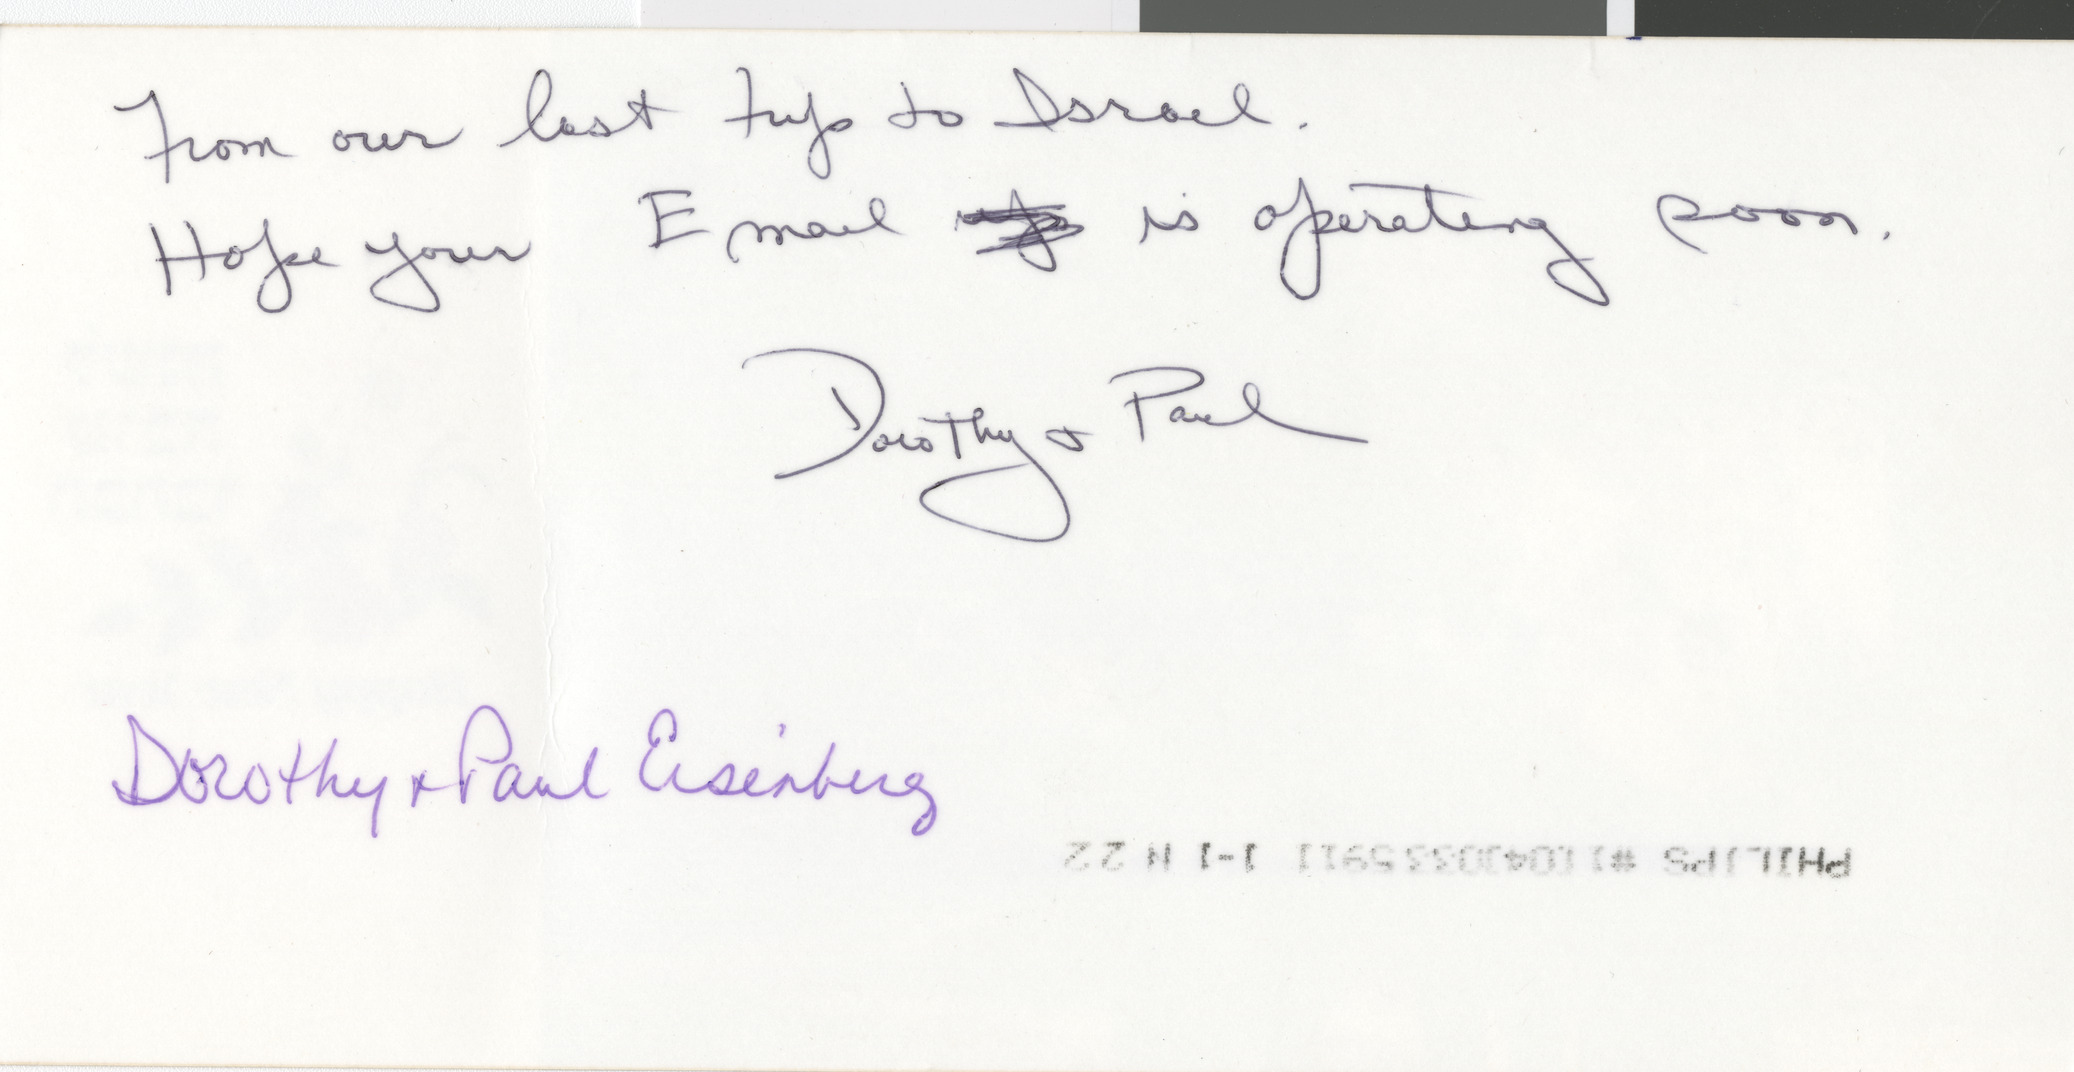 From our last trip to Israel.
Hope your Email is operating soon.
Dorothy & Paul
Dorothy & Paul Eisenberg
PHILIPS 1-1 N 22